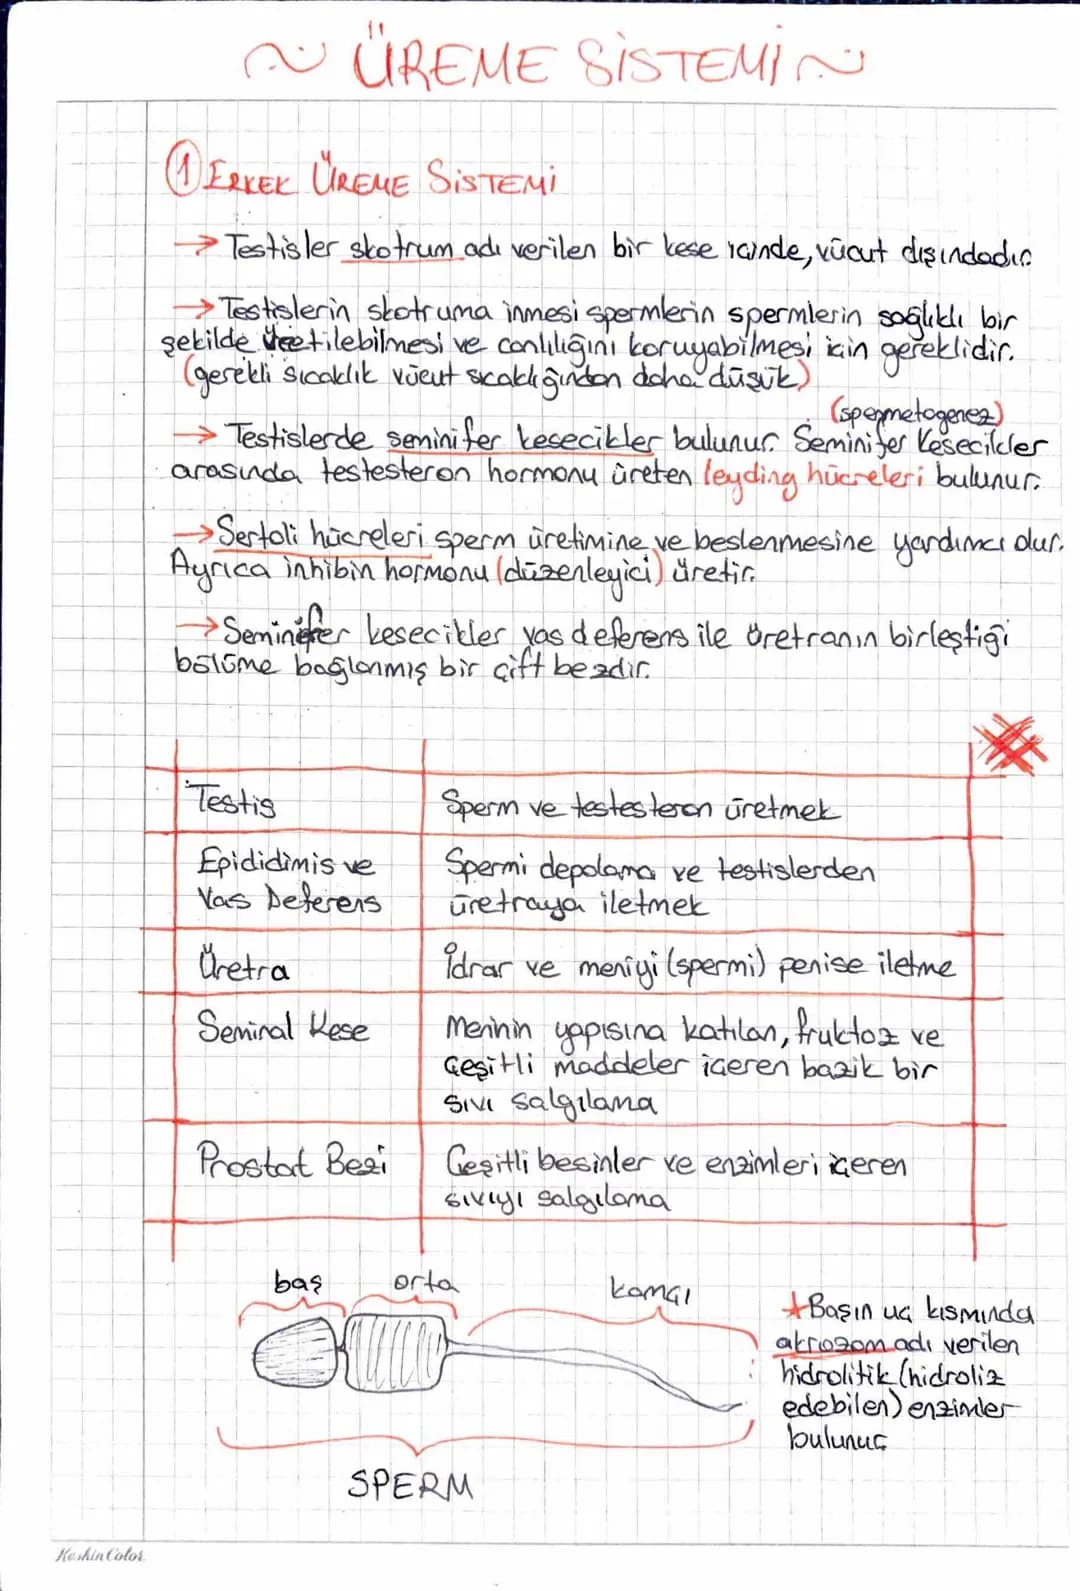 ~ ÜREME SİSTEMİ ~
1 ERKEK ÜREME SİSTEMİ
→ Testisler skotrum adı verilen bir kese içinde, vücut dışındadır.
→ Testislerin skotruma inmesi spermlerin spermlerin sağlıklı bir
şekilde üretilebilmesi ve canlılığını koruyabilmesi için gereklidir.
(gerekli sıcaklık vücut sıcaklığından daha düşük)
(spermetogenez)
→ Testislerde seminifer kesecikler bulunur. Seminifer Kesecikler
arasında testesteron hormonu üreten leyding hücreleri bulunur.
→ Sertoli hücreleri sperm üretimine ve beslenmesine yardımcı olur.
Ayrıca inhibin hormonu (düzenleyici) üretir.
→ Seminifer kesecikler vas deferens ile üretranın birleştiği
bölüme bağlanmış bir çift bezdir.
Testis
Sperm ve testesteron üretmek
Epididimis ve
Vas Deferens
Spermi depolama ve testislerden
üretraya iletmek
Üretra
İdrar ve meniyi (spermi) penise iletme
Seminal Kese
Meninin yapısına katılan, fruktoz ve
Çeşitli maddeler içeren bazik bir
sıvı salgılama
Prostat Bezi
Çeşitli besinler ve enzimleri içeren
sıvıyı salgılama
baş orta kamçı
★ Başın uç kısmında
akrozom adı verilen
hidrolitik (hidroliz
edebilen) enzimler
bulunur
SPERM
KeskinColor